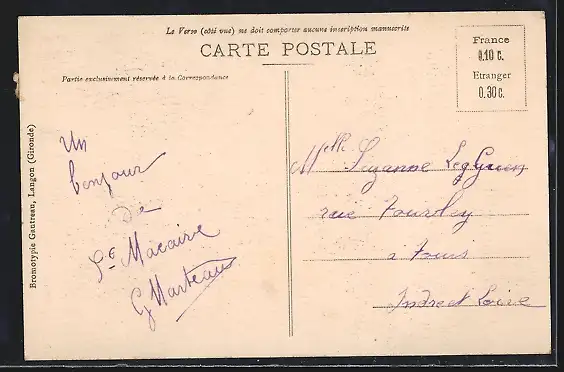 Le Verso (côté vue) ne doit comporter aucune inscription manuscrite
CARTE POSTALE
Partie exclusivement réservée à la Correspondance
France
0.10 c.
Etranger
0.30 c.
Bromotypie Gautreau, Langon (Gironde)
Un
bonjour
de
St Macaire
G Marteau
Melle Suzanne
rue
à Tours
Indre et Loire